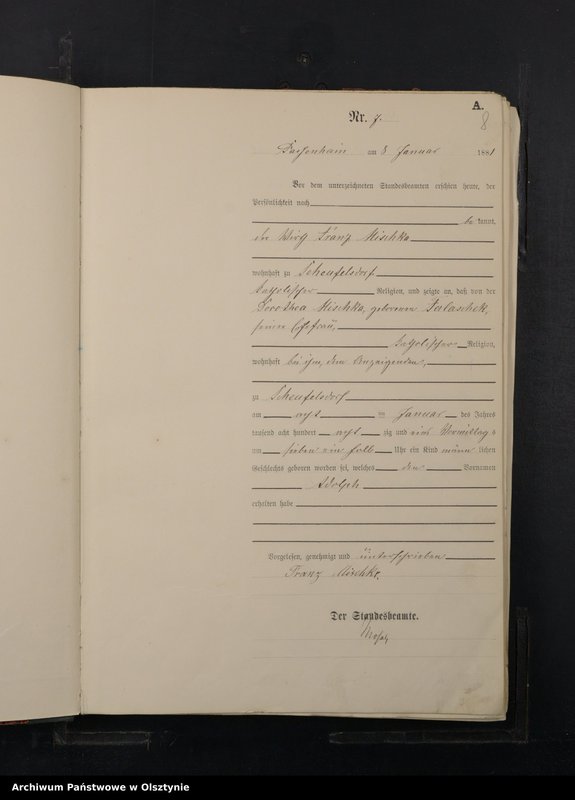 A.
8
Nr. 7.
Passenheim am 8 Januar 1881
Vor dem unterzeichneten Standesbeamten erschien heute, der
Persönlichkeit nach
be kannt,
der Wirth Franz Mischka
wohnhaft zu Scheufelsdorf
katholischer Religion, und zeigte an, daß von der
Dorothea Mischka, geborenen
seiner Ehefrau,
katholischer Religion,
wohnhaft bei ihm, dem Anzeigenden,
zu Scheufelsdorf
am acht en Januar des Jahres
tausend acht hundert acht zig und eins Vormittags
um sieben ein halb Uhr ein Kind männ lichen
Geschlechts geboren worden sei, welches den Vornamen
Adolph
erhalten habe
Vorgelesen, genehmigt und unterschrieben
Franz Mischka.
Der Standesbeamte.
Archiwum Państwowe w Olsztynie